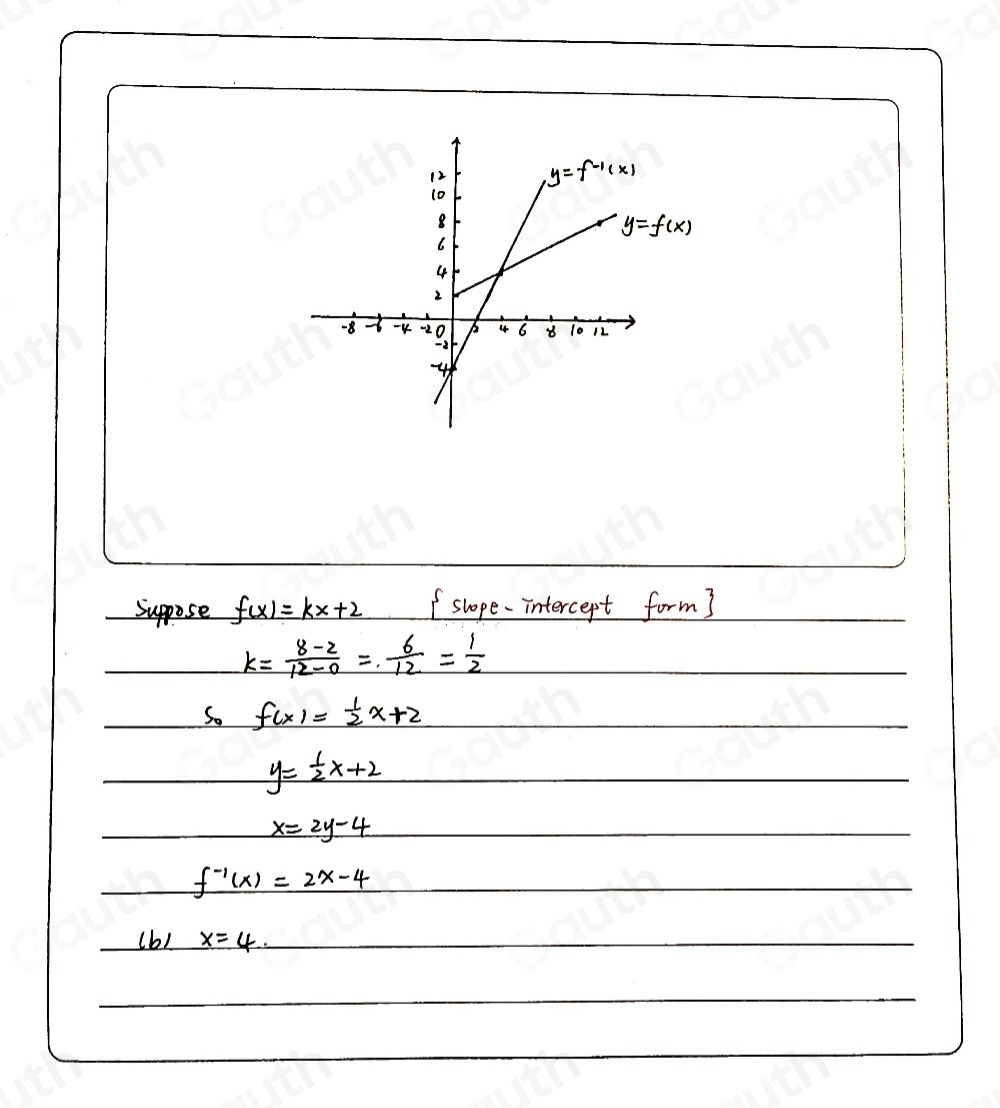 12
y=f⁻¹(x)
10
8
y=f(x)
6
4
2
-8 -6 -4 -2 0 2 4 6 8 10 12
-2
-4
Suppose f(x)=kx+2 {slope-intercept form}
k= \frac{8-2}{12-0} =. \frac{6}{12} = \frac{1}{2}
So f(x)= \frac{1}{2}x+2
y= \frac{1}{2}x+2
x= 2y-4
f⁻¹(x) = 2x-4
(b) x=4.
Gauth